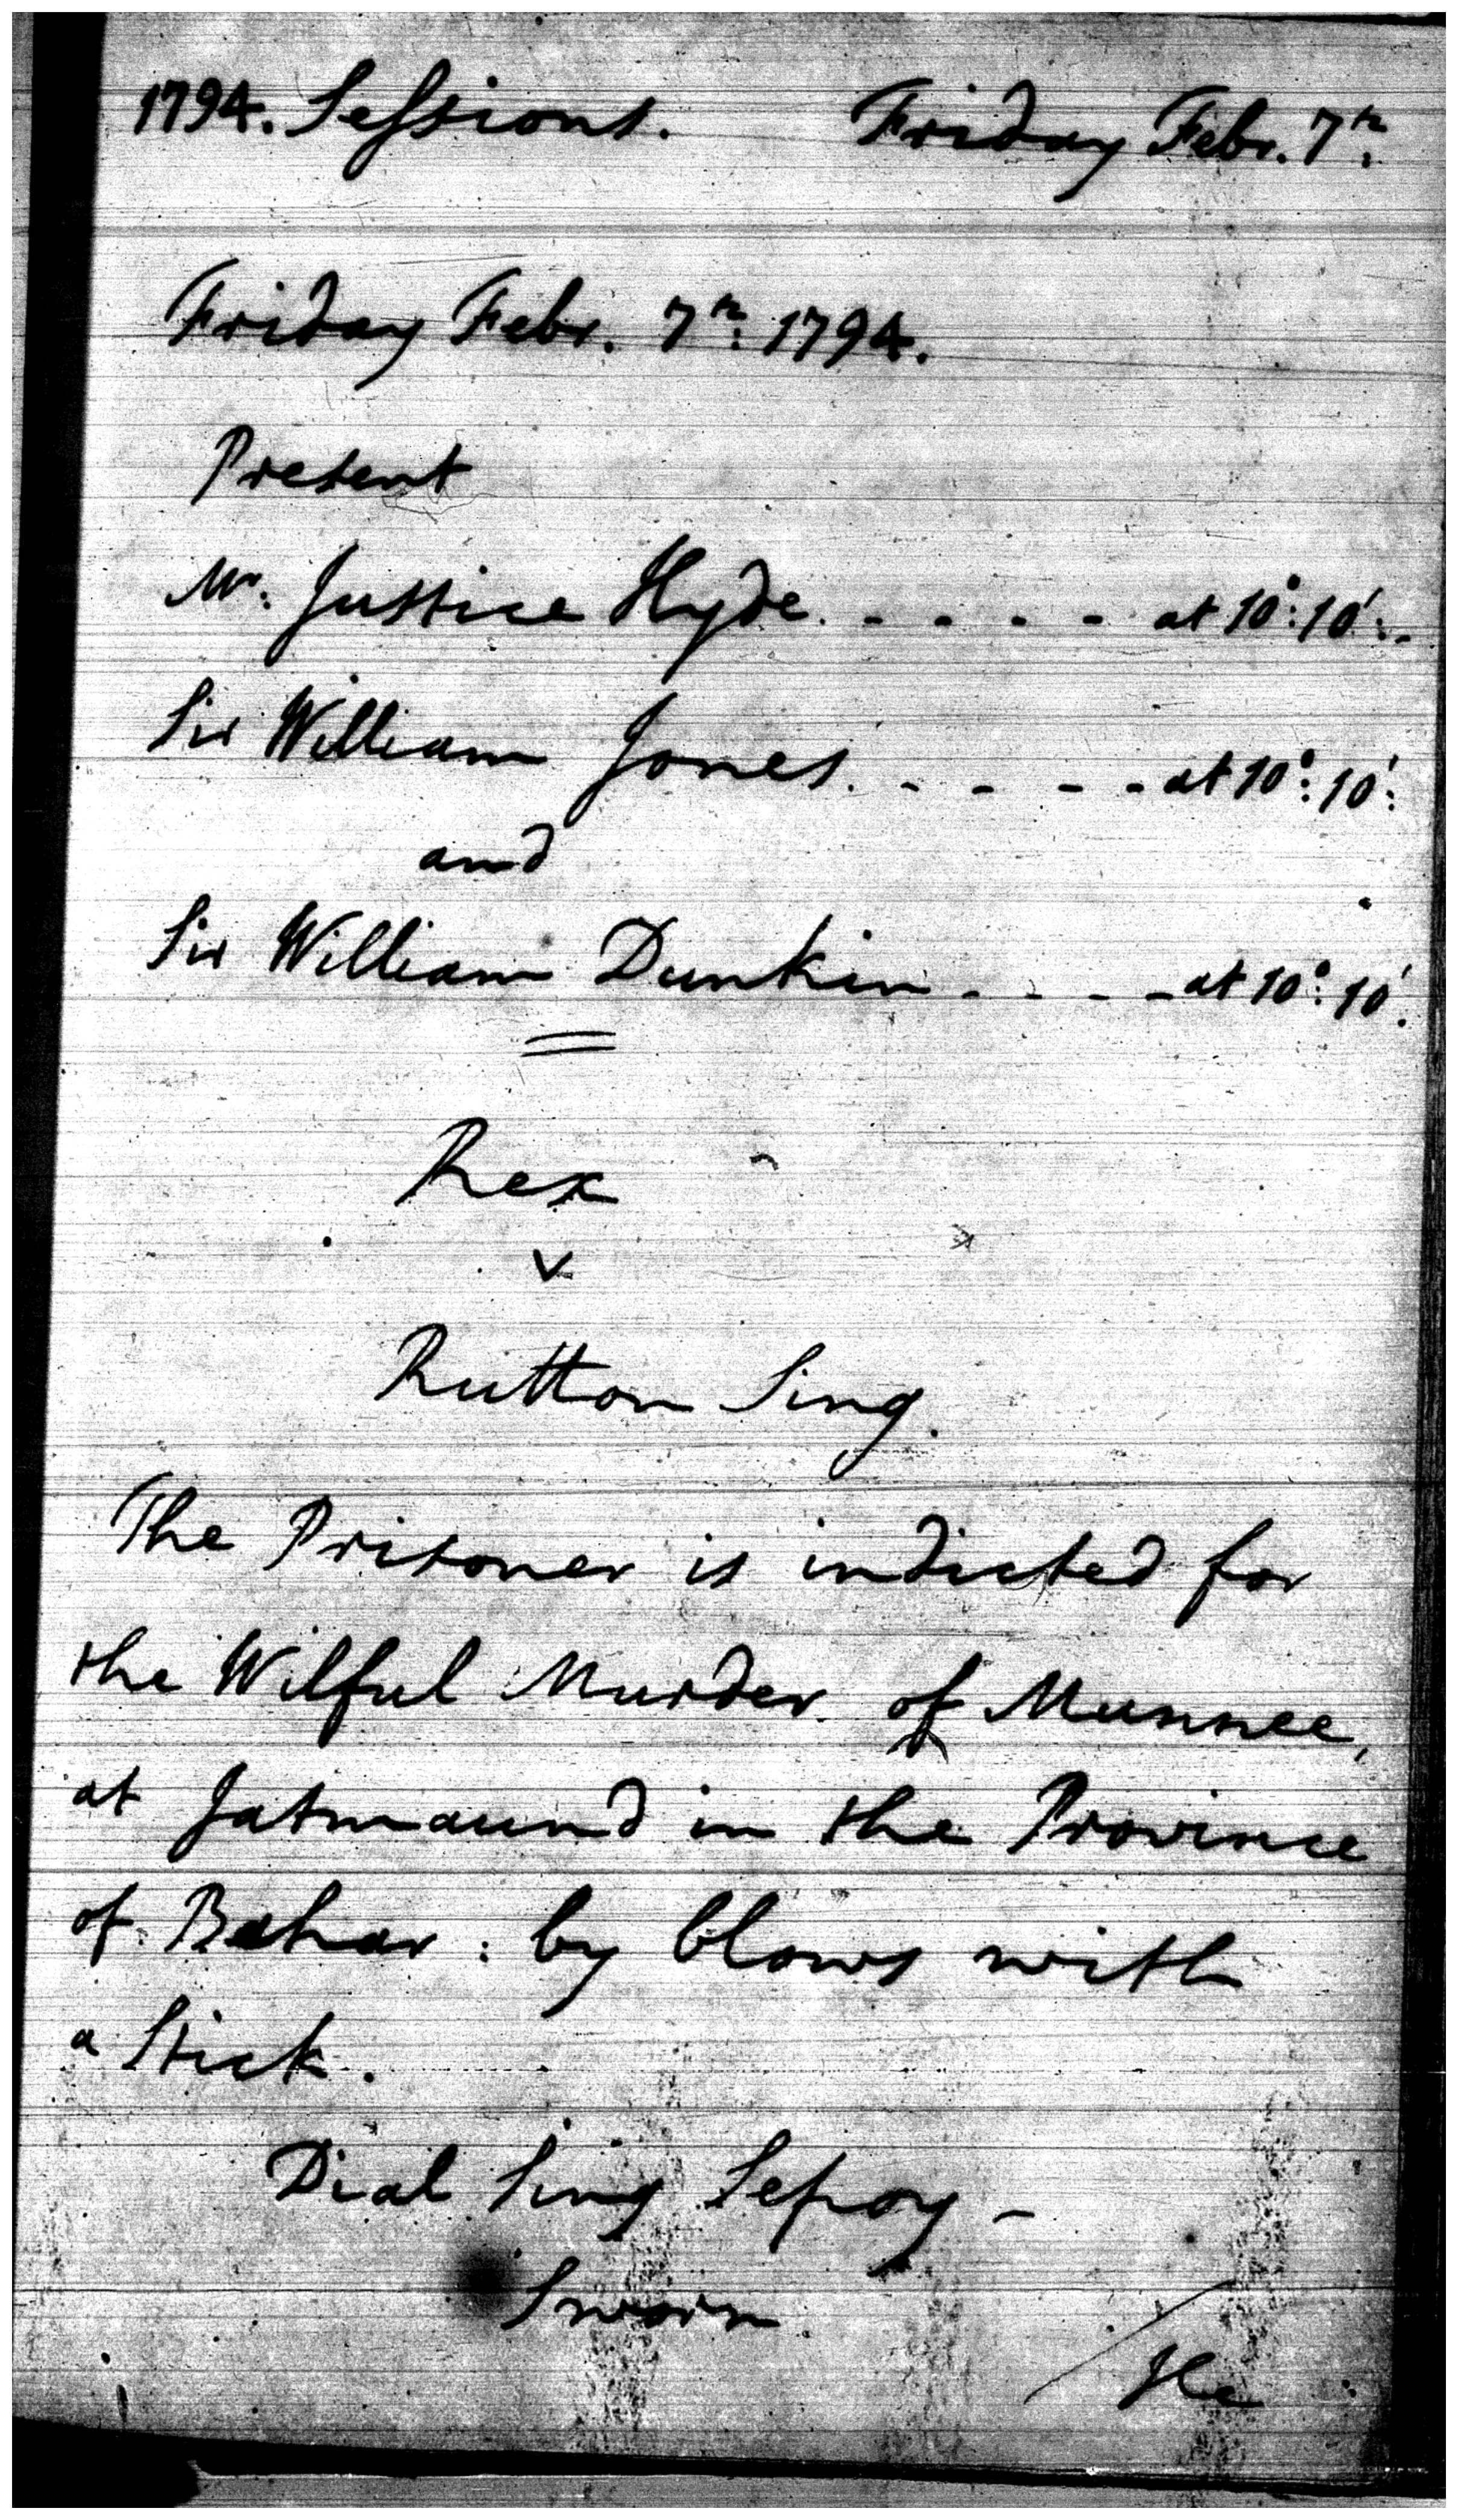 1794. Sessions. Friday Febr. 7th.
Friday Febr. 7th. 1794.
Present
Mr. Justice Hyde. - - - - at 10°: 10':-
Sir William Jones. - - - - at 10°: 10':
and
Sir William Dunkin - - - - at 10°: 10'.
Rex
v
Rutton Sing.
The Prisoner is indicted for
the Wilful Murder of Munnee,
at Jatmaund in the Province
of Bahar: by blows with
a Stick.
Dial Sing Sepoy -
Sworn
He